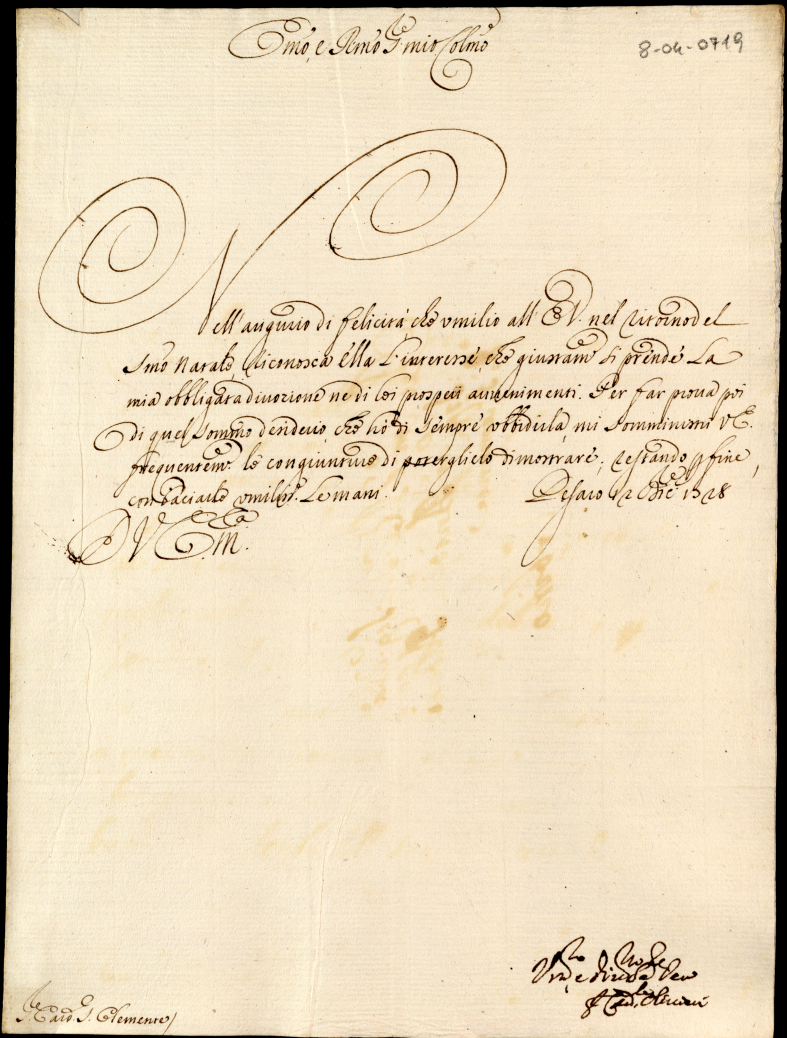 Emo, e Rmo Sre mio Colmo
8-04-0719
Nell'augurio di felicità, che umilio all'E.V. nel ritorno del
Smo Natale, riconosca Ella l'interesse, che giustamte si prende la
mia obbligata divozione ne di Lei prosperi avvenimenti. Per far prova poi
di quel sommo desiderio, che hò di sempre ubbidirla, mi somministri V.E.
frequentemte le congiunture di poterglielo dimostrare; restando p fine,
con baciarle umilmte le mani. Pesaro 12 Dice 1728
D V. Emza
Sre Card. S. Clemente